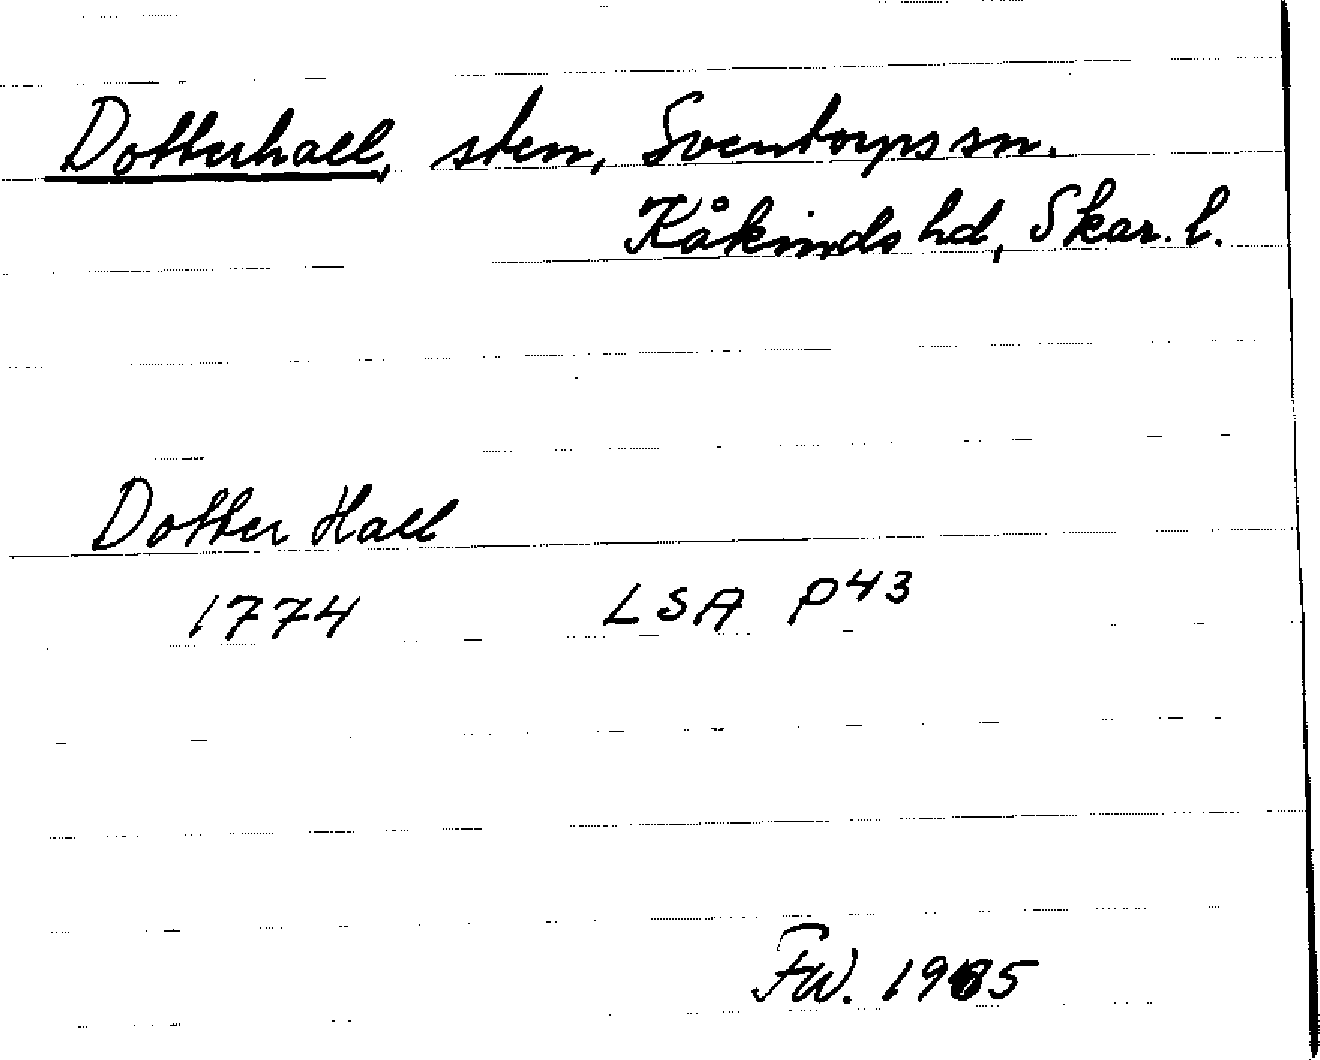 Dotterhall, sten, Sventorps sn.
Kåkinds hd, Skar. l.
Dotter Hall
1774 LSA P43
FW. 1965